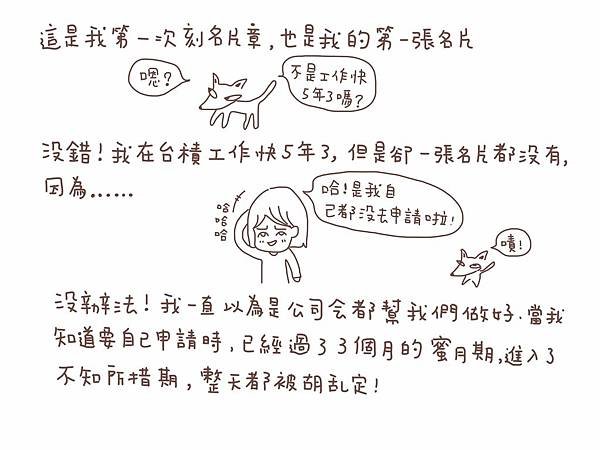 這是我第一次刻名片章,也是我的第一張名片
嗯?
不是工作快
5年了嗎?
沒錯!我在台積工作快5年了,但是卻一張名片都沒有,
因為......
哈哈哈
哈!是我自
己都沒去申請啦!
嘖!
沒辦法!我一直以為是公司会都幫我們做好.當我
知道要自己申請時,已經過了3個月的蜜月期,進入了
不知所措期,整天都被胡乱定!